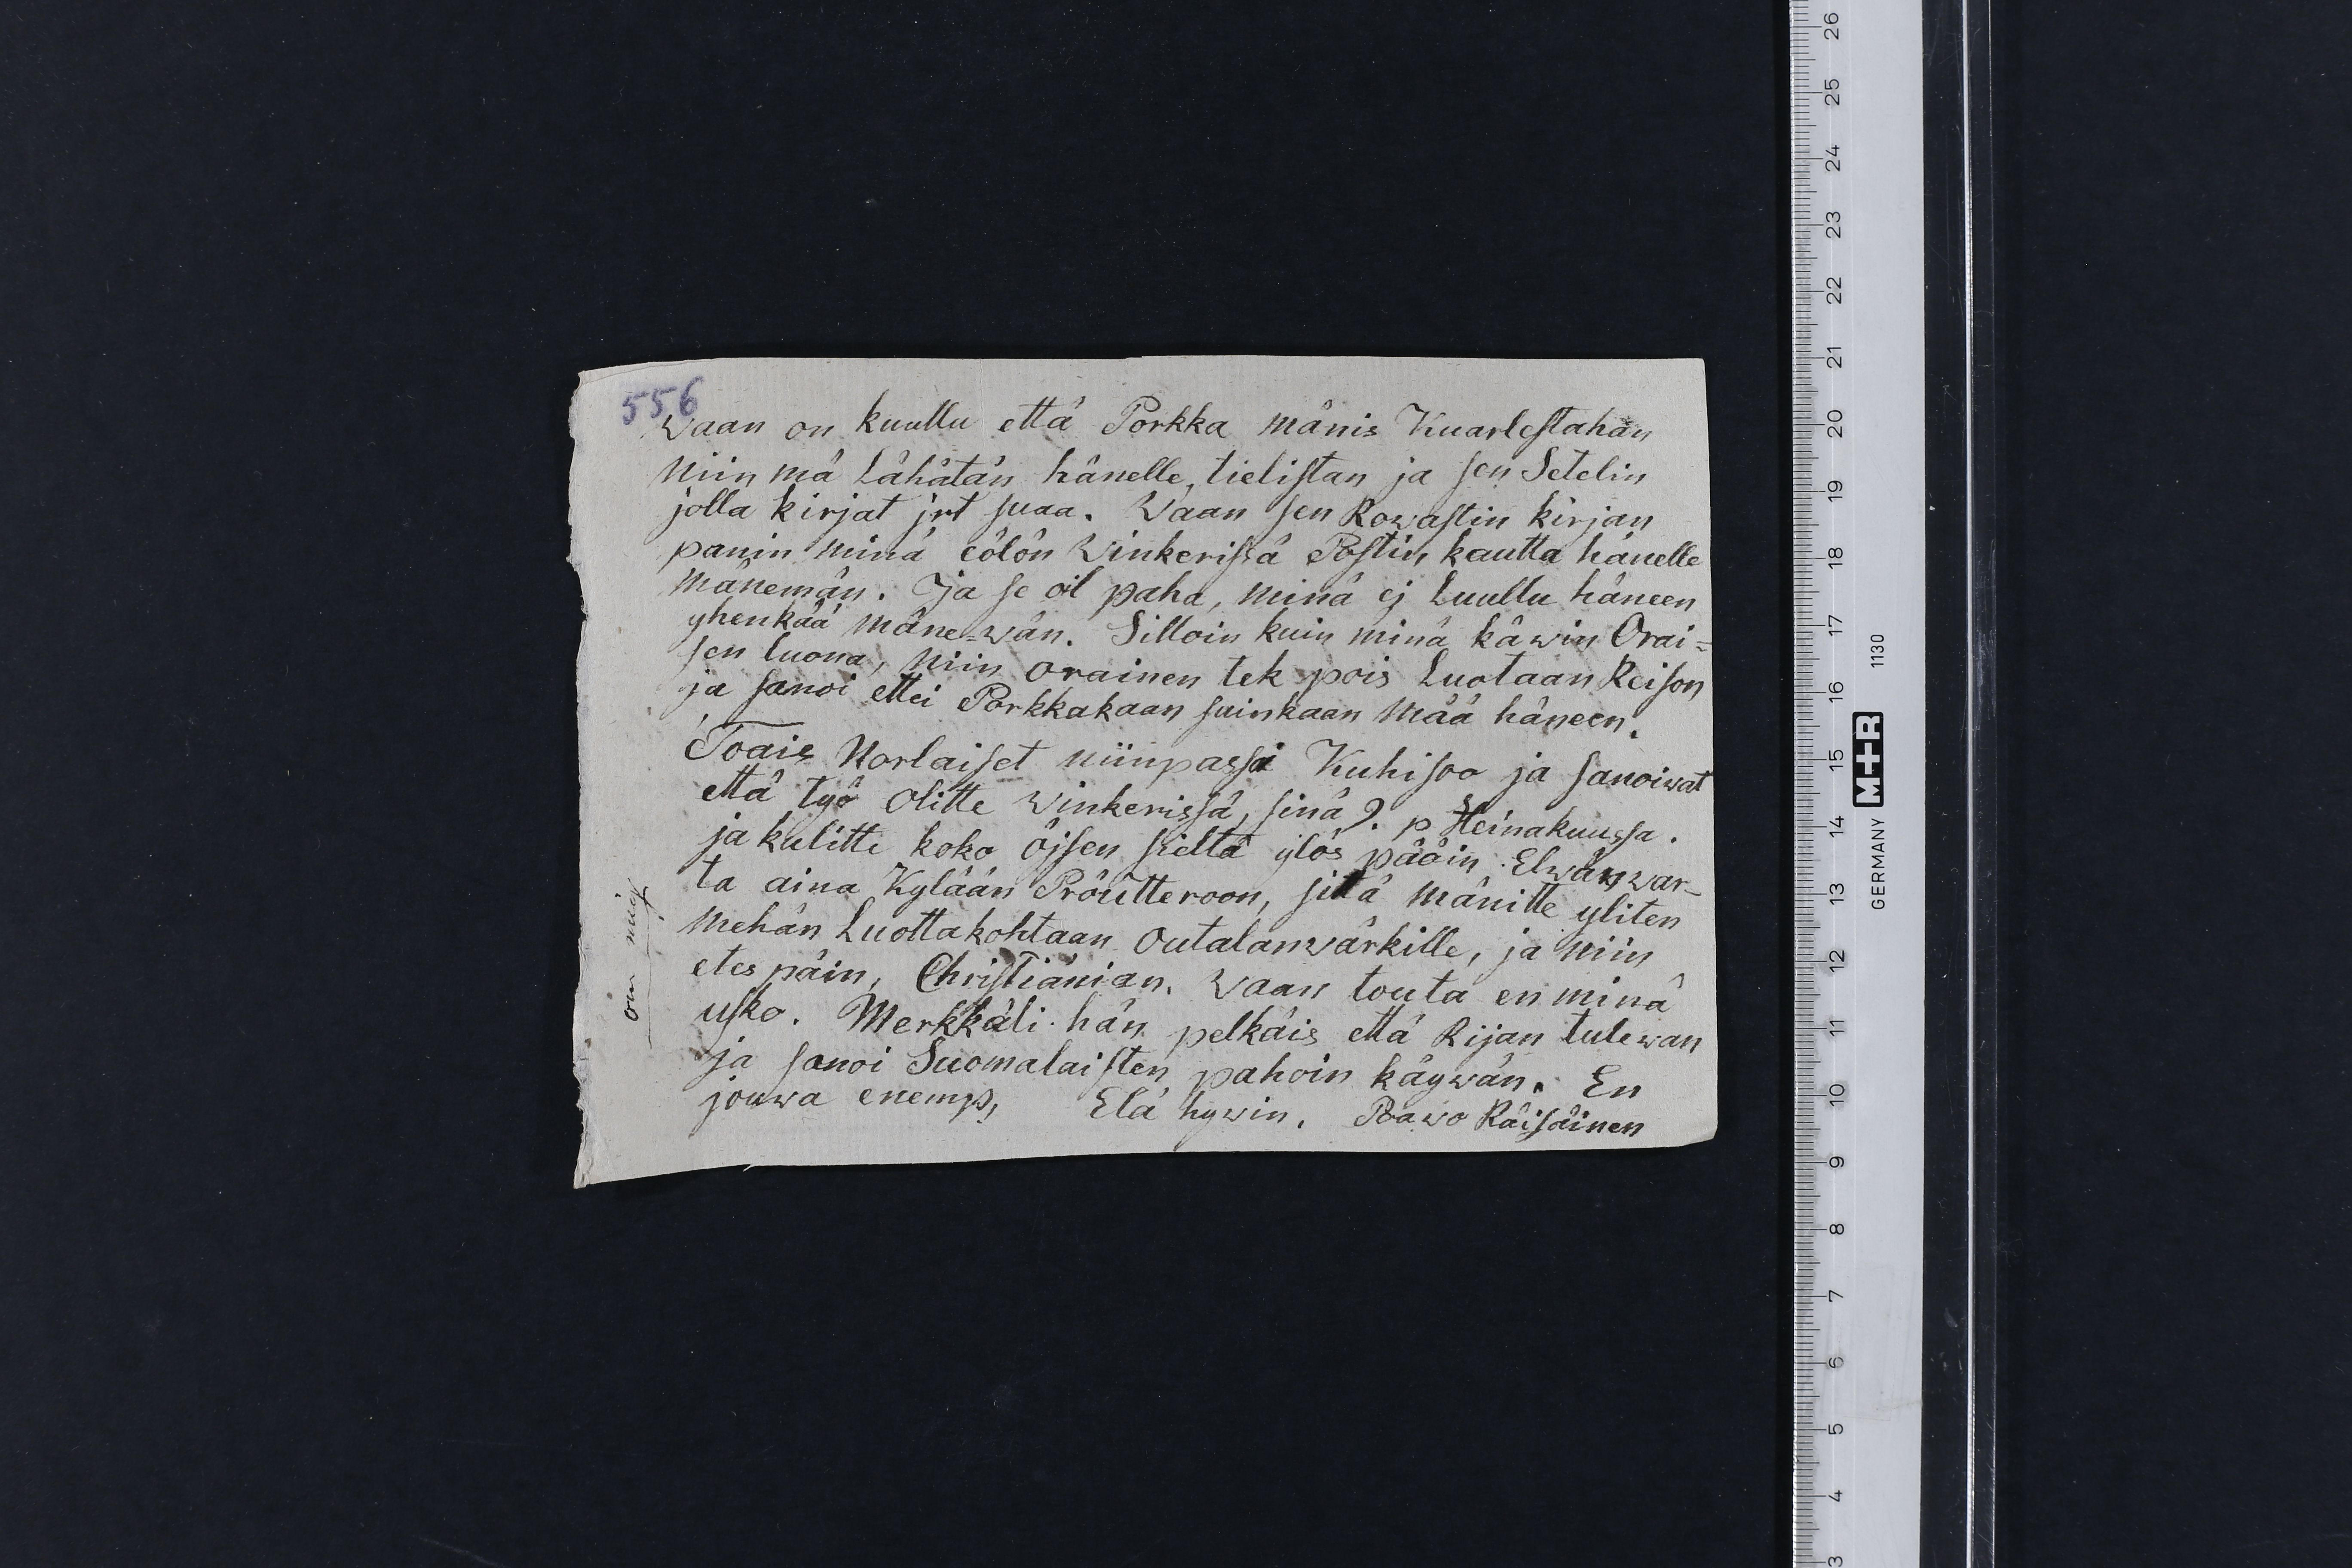 556
waan on kuullu että Porkka mänis Kuarlestahan
niin mä Lähätän hänelle, tielistan ja sen Setelin
jolla kirjat jrt suaa. Waan sen Rowastin kirjan
panin minä eölön Winkerissä Postin kautta hänelle
mänemän. Ja se oil paha, minä ej Luullu häneen
yhenkää mäne-wän. Silloin kuin minä käwin Orai=
sen luona, niin orainen tek pois Luotaan Reison
ja sanoi ettei Porkkakaan suinkaan mää häneen.
Toaie Norlaiset niinpassa Kuhisoo ja sanoiwat
että työ olitte winkerissä, sinä 9. p Heinakuussa.
ja kulitte koko öjsen sieltä ylös pääin Elwänwar-
ta aina Kylään Pröutteroon, sitä mänitte yliten
mehän Luottakohtaan outalanwärkille, ja niin
etes päin, Christianian. Waan touta en minä
usko. Merkkäli hän pelkäis että Rijan tulewan
ja sanoi Suomalaisten pahoin käywän. En
jouwa enemp, Elä hywin. Poawo Räisäinen
om mig
26
25
24
23
22
21
20
19
18
17
16
15
14
13
12
11
10
9
8
7
6
5
4
3
GERMANY M+R 1130